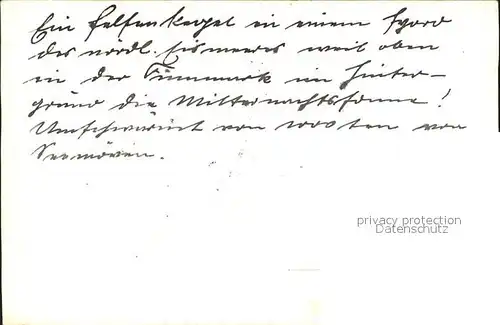 Ein Felsenkegel in einem Fjord
des nördl. Eismeeres weit oben
in der Finnmark im Hinter-
grund die Mitternachtssonne!
Umschwärmt von 1000ten von
Seemöven.
privacy protection
Datenschutz